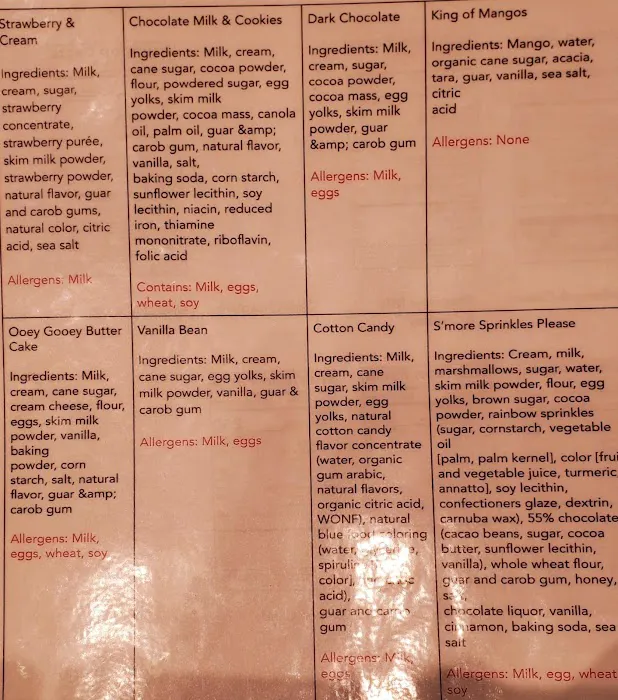 Strawberry &
Cream
Ingredients: Milk,
cream, sugar,
strawberry
concentrate,
strawberry purée,
skim milk powder,
strawberry powder,
natural flavor, guar
and carob gums,
natural color, citric
acid, sea salt
Allergens: Milk
Chocolate Milk & Cookies
Ingredients: Milk, cream,
cane sugar, cocoa powder,
flour, powdered sugar, egg
yolks, skim milk
powder, cocoa mass, canola
oil, palm oil, guar &amp;
carob gum, natural flavor,
vanilla, salt,
baking soda, corn starch,
sunflower lecithin, soy
lecithin, niacin, reduced
iron, thiamine
mononitrate, riboflavin,
folic acid
Contains: Milk, eggs,
wheat, soy
Dark Chocolate
Ingredients: Milk,
cream, sugar,
cocoa powder,
cocoa mass, egg
yolks, skim milk
powder, guar
&amp; carob gum
Allergens: Milk,
eggs
King of Mangos
Ingredients: Mango, water,
organic cane sugar, acacia,
tara, guar, vanilla, sea salt,
citric
acid
Allergens: None
Ooey Gooey Butter
Cake
Ingredients: Milk,
cream, cane sugar,
cream cheese, flour,
eggs, skim milk
powder, vanilla,
baking
powder, corn
starch, salt, natural
flavor, guar &amp;
carob gum
Allergens: Milk,
eggs, wheat, soy
Vanilla Bean
Ingredients: Milk, cream,
cane sugar, egg yolks, skim
milk powder, vanilla, guar &
carob gum
Allergens: Milk, eggs
Cotton Candy
Ingredients: Milk,
cream, cane
sugar, skim milk
powder, egg
yolks, natural
cotton candy
flavor concentrate
(water, organic
gum arabic,
natural flavors,
organic citric acid,
WONF), natural
blue food coloring
(water,
color],
acid),
guar and carob
gum
Allergens: Milk,
eggs
S'more Sprinkles Please
Ingredients: Cream, milk,
marshmallows, sugar, water,
skim milk powder, flour, egg
yolks, brown sugar, cocoa
powder, rainbow sprinkles
(sugar, cornstarch, vegetable
oil
[palm, palm kernel], color [frui
and vegetable juice, turmeric,
annatto], soy lecithin,
confectioners glaze, dextrin,
carnuba wax), 55% chocolate
(cacao beans, sugar, cocoa
butter, sunflower lecithin,
vanilla), whole wheat flour,
guar and carob gum, honey,
chocolate liquor, vanilla,
cinnamon, baking soda, sea
salt
Allergens: Milk, egg, wheat
soy